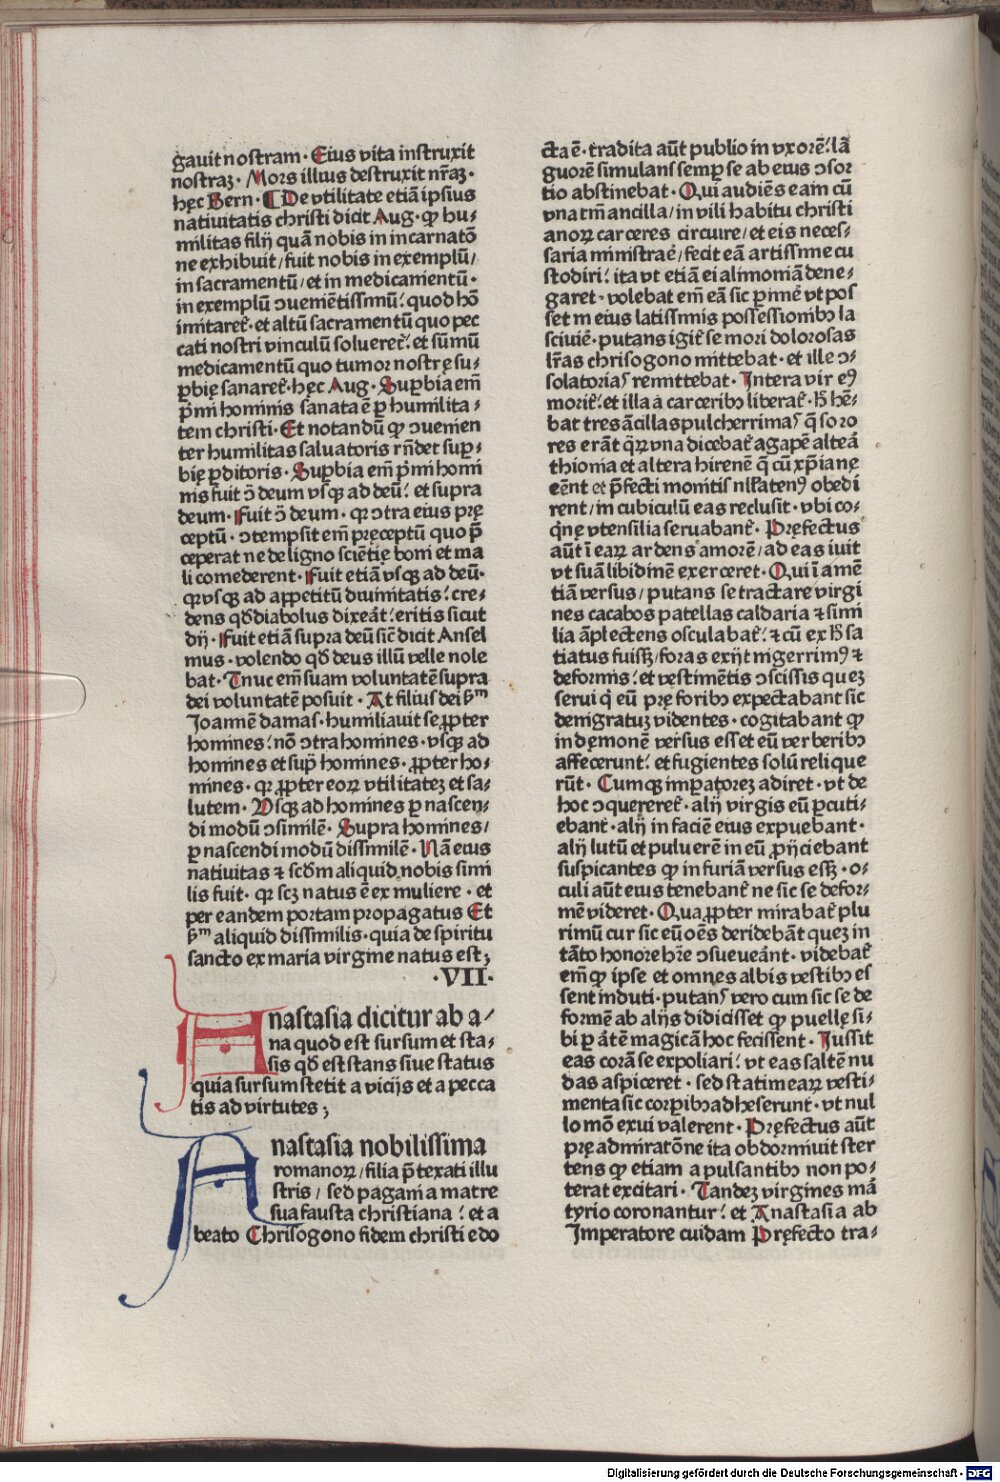 gauit nostram · Eius vita instruxit
nostraꝫ · Mors illius destruxit nr̄aꝫ ·
hęc Bern · ¶ De vtilitate etiā ipsius
natiuitatis christi dicit Aug · ꝙ hu⸗
militas filij quā nobis in incarnatō
ne exhibuit / fuit nobis in exemplū /
in sacramentū / et in medicamentū ·
in exemplū ↄueniētissimū: quod hō
imitaret᷑ · et altū sacramentū quo pec
cati nostri vinculū solueret᷑: et sūmū
medicamentū quo tumor nostrę su⸗
ꝑbię sanaret᷑ · hęc Aug · Suꝑbia em̄
p̄mi hominis sanata ē ꝑ humilita⸗
tem christi · Et notandū ꝙ ↄuenien
ter humilitas saluatoris rn̄det suꝑ⸗
bię ꝓditoris · Suꝑbia em̄ p̄mi homi
nis fuit ↄ̄ deum vsqꝫ ad deū: et supra
deum · Fuit ↄ̄ deum · qꝛ ↄtra eius prę
ceptū · ↄtempsit em̄ pręceptū quo p̄
ceperat ne de ligno sciētię boni et ma
li comederent · Fuit etiā vsqꝫ ad deū ·
qꝛ vsqꝫ ad appetitū diuinitatis: cre⸗
dens qd̄ diabolus dixeāt: eritis sicut
dij · Fuit etiā supra deū sic̄ dicit Ansel
mus · volendo qd̄ deus illū velle nole
bat · Tunc em̄ suam voluntatē supra
dei voluntatē posuit · At filius dei ẜm
Joannē damas · humiliauit se ꝓpter
homines: nō ↄtra homines · vsqꝫ ad
homines et sup̄ homines · ꝓpter ho⸗
mines · qꝛ ꝓpter eoꝝ vtilitateꝫ et sa⸗
lutem · Vsqꝫ ad homines ꝑ nascen⸗
di modū ↄsimilē · Supra homines /
ꝑ nascendi modū dissimilē · Nā eius
natiuitas ⁊ scd̄m aliquid nobis simi
lis fuit · qꝛ scꝫ natus ē ex muliere · et
per eandem portam propagatus Et
ẜm aliquid dissimilis · quia de spiritu
sancto ex maria virgine natus est;
· VII ·
Anastasia dicitur ab a⸗
na quod est sursum et sta⸗
sis qd̄ est stans siue status
quia sursum stetit a vicijs et a pecca
tis ad virtutes;
Anastasia nobilissima
romanoꝝ / filia p̄texati illu
stris / sed pagani a matre
sua fausta christiana: et a
beato Chrisogono fidem christi edo
cta ē · tradita aūt publio in vxorē: lā
guorē simulans semꝑ se ab eius ↄsor
tio abstinebat · Qui audiēs eam cū
vna tm̄ ancilla / in vili habitu christi
anoꝝ carceres circuire / et eis neces⸗
saria ministrare᷑ / fecit eā artissime cu
stodiri: ita vt etiā ei alimoniā dene⸗
garet · volebat em̄ eā sic ꝑimē vt pos
set in eius latissimis possessionibꝫ la
sciuiē · putans igit᷑ se mori dolorosas
lr̄as chrisogono mittebat · et ille ↄ⸗
solatorias remittebat · Intera vir eꝰ
morit᷑: et illa a carceribꝫ liberat᷑ · H̄ hē⸗
bat tres ācillas pulcherrimas q̄ soro
res erāt qꝝ vna dicebat᷑ agapē alteā
thionia et altera hirenē q̄ cū xp̄ianę
eēnt et p̄fecti monitis nllatenꝰ obedi
rent / in cubiculū eas reclusit · vbi co⸗
qnę vtensilia seruabant᷑ · Pręfectus
aūt ī eaꝝ ardens amorē / ad eas iuit
vt suā libidinē exerceret · Qui ī amē
tiā versus / putans se tractare virgi
nes cacabos patellas caldaria ⁊ simi
lia āplectens osculabat᷑: ⁊ cū ex h̄ sa
tiatus fuissꝫ / foras exijt nigerrimꝰ ⁊
deformis: et vestimētis ↄscissis queꝫ
serui q̇ eū prę foribꝰ expectabant sic
denigratuꝫ videntes · cogitabant ꝙ
in dęmonē versus esset eū verberibꝫ
affecerunt: et fugientes solū relique
rūt · Cumqꝫ imꝑatoreꝫ adiret · vt de
hoc ↄquereret᷑ · alij virgis eū ꝑcuti⸗
ebant · alij in faciē eius expuebant ·
alij lutū et puluerē in eū ꝓijciebant
suspicantes ꝙ in furiā versus essꝫ · o⸗
culi aūt eius tenebant᷑ ne sic se defor⸗
mē videret · Qua ꝓpter mirabat᷑ plu
rimū cur sic eū oēs deridebāt queꝫ in
tāto honore hr̄e ↄsueueānt · videbat᷑
em̄ ꝙ ipse et omnes albis vestibꝫ es
sent induti · putans vero cum sic se de
formē ab alijs didicisset ꝙ puellę si⸗
bi ꝑ ātē magicā hoc fecissent · Jussit
eas corā se expoliari: vt eas saltē nu
das aspiceret · sed statim eaꝝ vesti⸗
menta sic corꝑibꝫ adheserunt · vt nul
lo mō exui valerent · Pręfectus aūt
prę admiratōne ita obdormiuit ster
tens ꝙ etiam a pulsantibꝫ non po⸗
terat excitari · Tandeꝫ virgines mā
tyrio coronantur: et Anastasia ab
Imperatore cuidam Pręfecto tra⸗
Digitalisierung gefördert durch die Deutsche Forschungsgemeinschaft - DFG